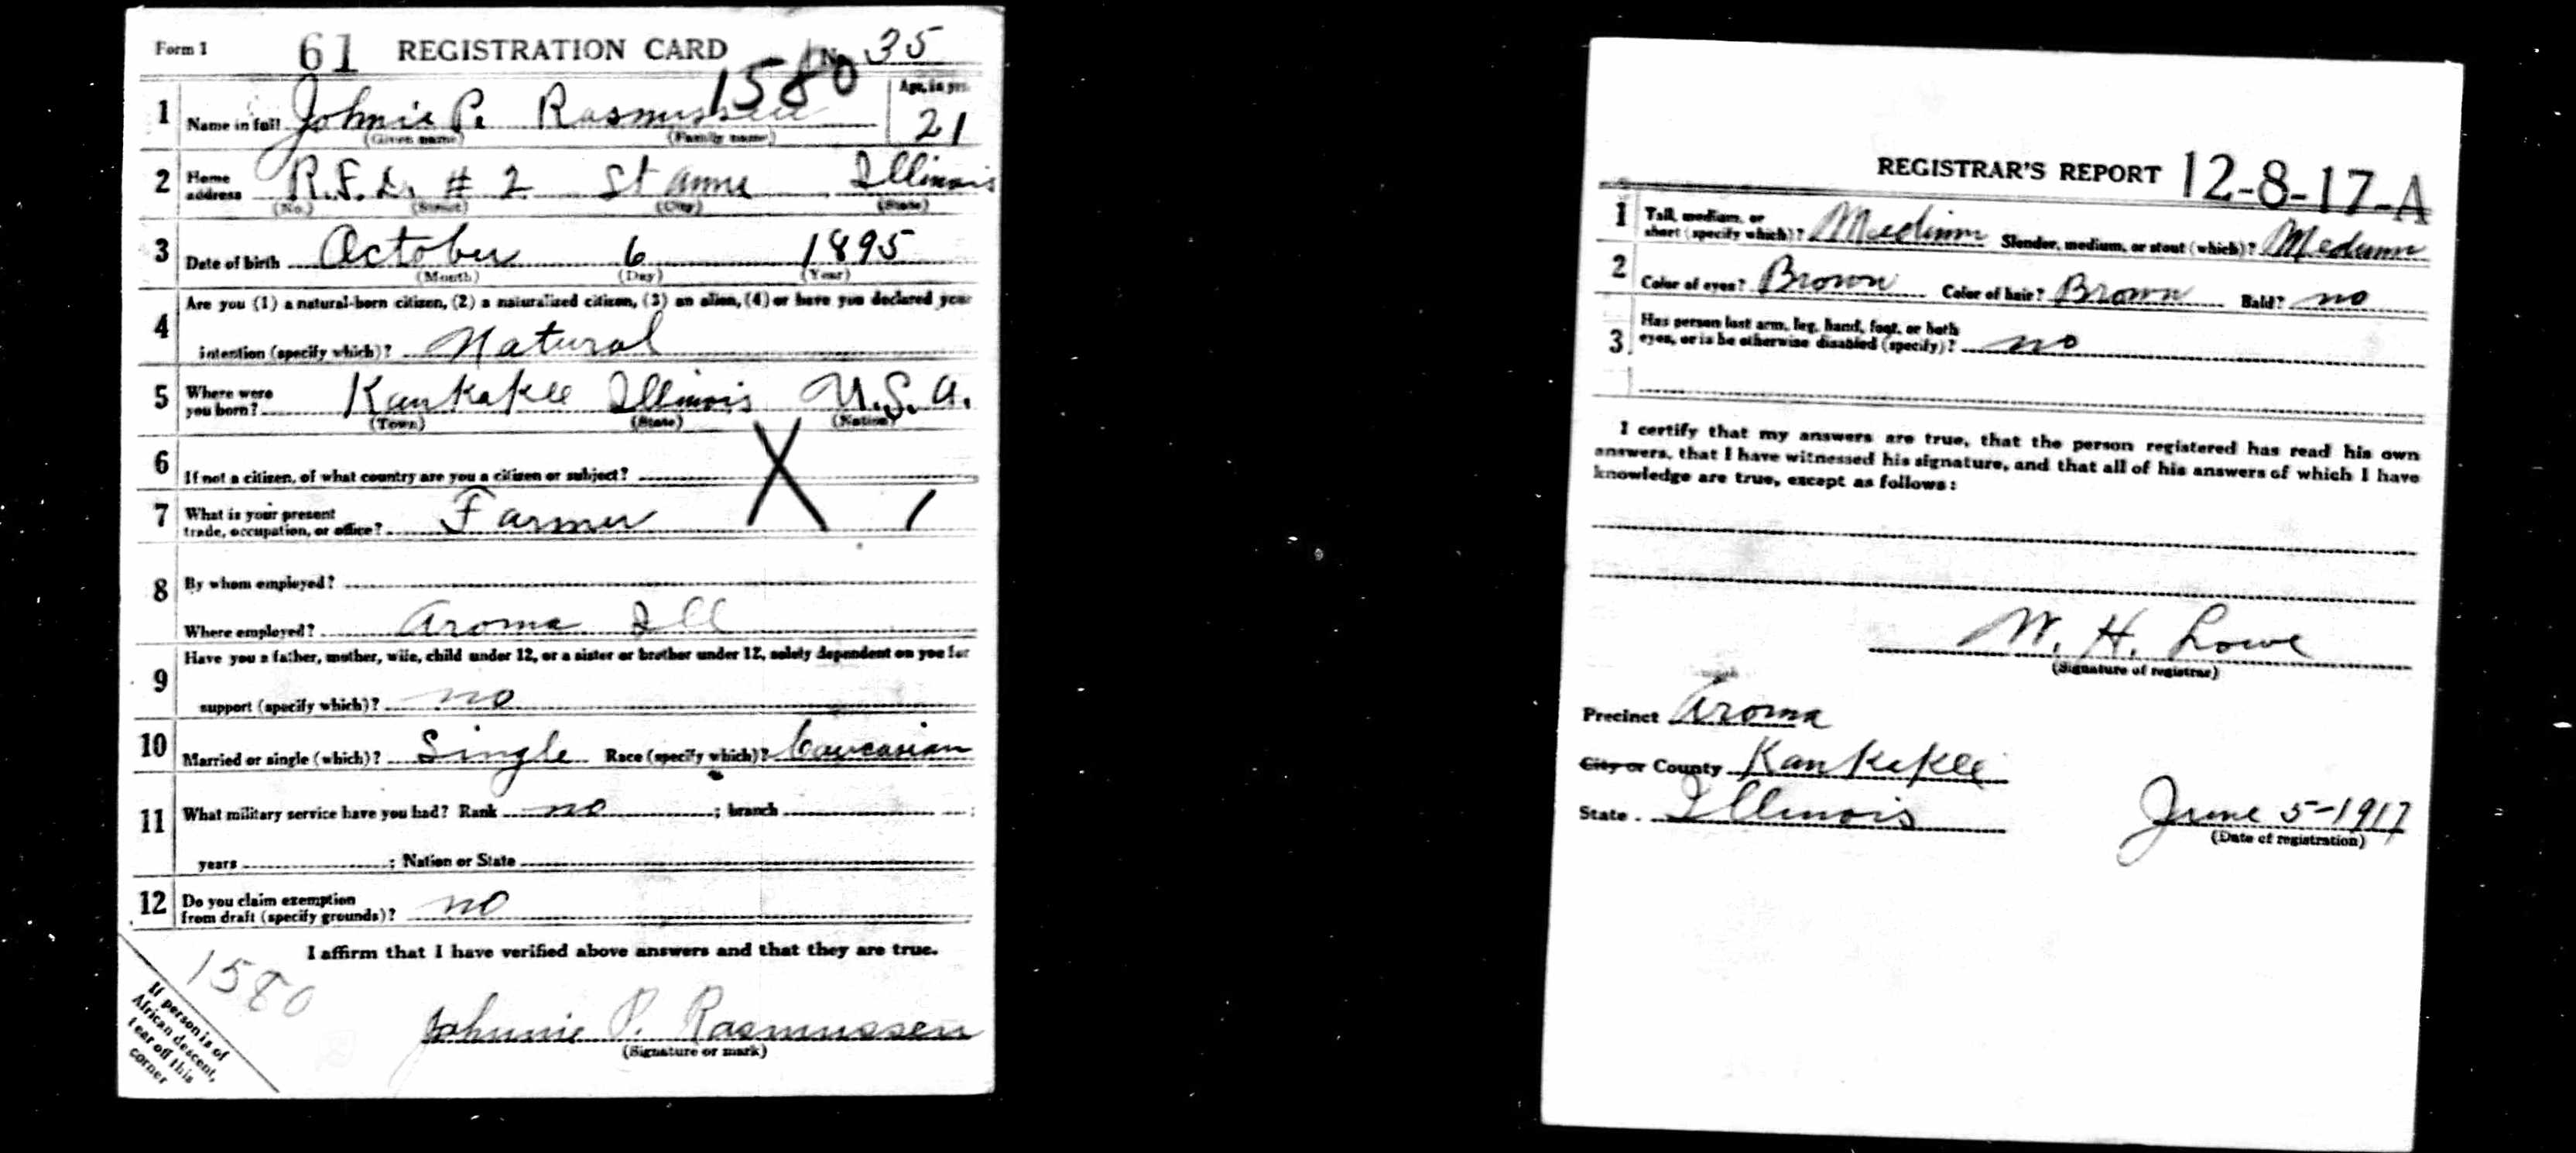 Form 1 61 REGISTRATION CARD No. 35
1580
1 Name in full Johnie P. Rasmussen Age, in yrs. 21
(Given name) (Family name)
2 Home address R.F.D. # 2 St Anne Illinois
(No.) (Street) (City) (State)
3 Date of birth October 6 1895
(Month) (Day) (Year)
4 Are you (1) a natural-born citizen, (2) a naturalized citizen, (3) an alien, (4) or have you declared your
intention (specify which)? Natural
5 Where were you born? Kankakee Illinois U.S.A.
(Town) (State) (Nation)
6 If not a citizen, of what country are you a citizen or subject? X
7 What is your present
trade, occupation, or office? Farmer 1
8 By whom employed?
Where employed? Aroma Ill
9 Have you a father, mother, wife, child under 12, or a sister or brother under 12, solely dependent on you for
support (specify which)? no
10 Married or single (which)? Single Race (specify which)? Caucasian
11 What military service have you had? Rank no ; branch ;
years ; Nation or State
12 Do you claim exemption
from draft (specify grounds)? no
I affirm that I have verified above answers and that they are true.
1580
Johnnie P. Rasmussen
(Signature or mark)
If person is of
African descent,
tear off this
corner
REGISTRAR'S REPORT 12-8-17-A
1 Tall, medium, or
short (specify which)? Medium Slender, medium, or stout (which)? Medium
2 Color of eyes? Brown Color of hair? Brown Bald? no
3 Has person lost arm, leg, hand, foot, or both
eyes, or is he otherwise disabled (specify)? no
I certify that my answers are true, that the person registered has read his own
answers, that I have witnessed his signature, and that all of his answers of which I have
knowledge are true, except as follows:
W. H. Lowe
(Signature of registrar)
Precinct Aroma
City or County Kankakee
State Illinois June 5-1917
(Date of registration)